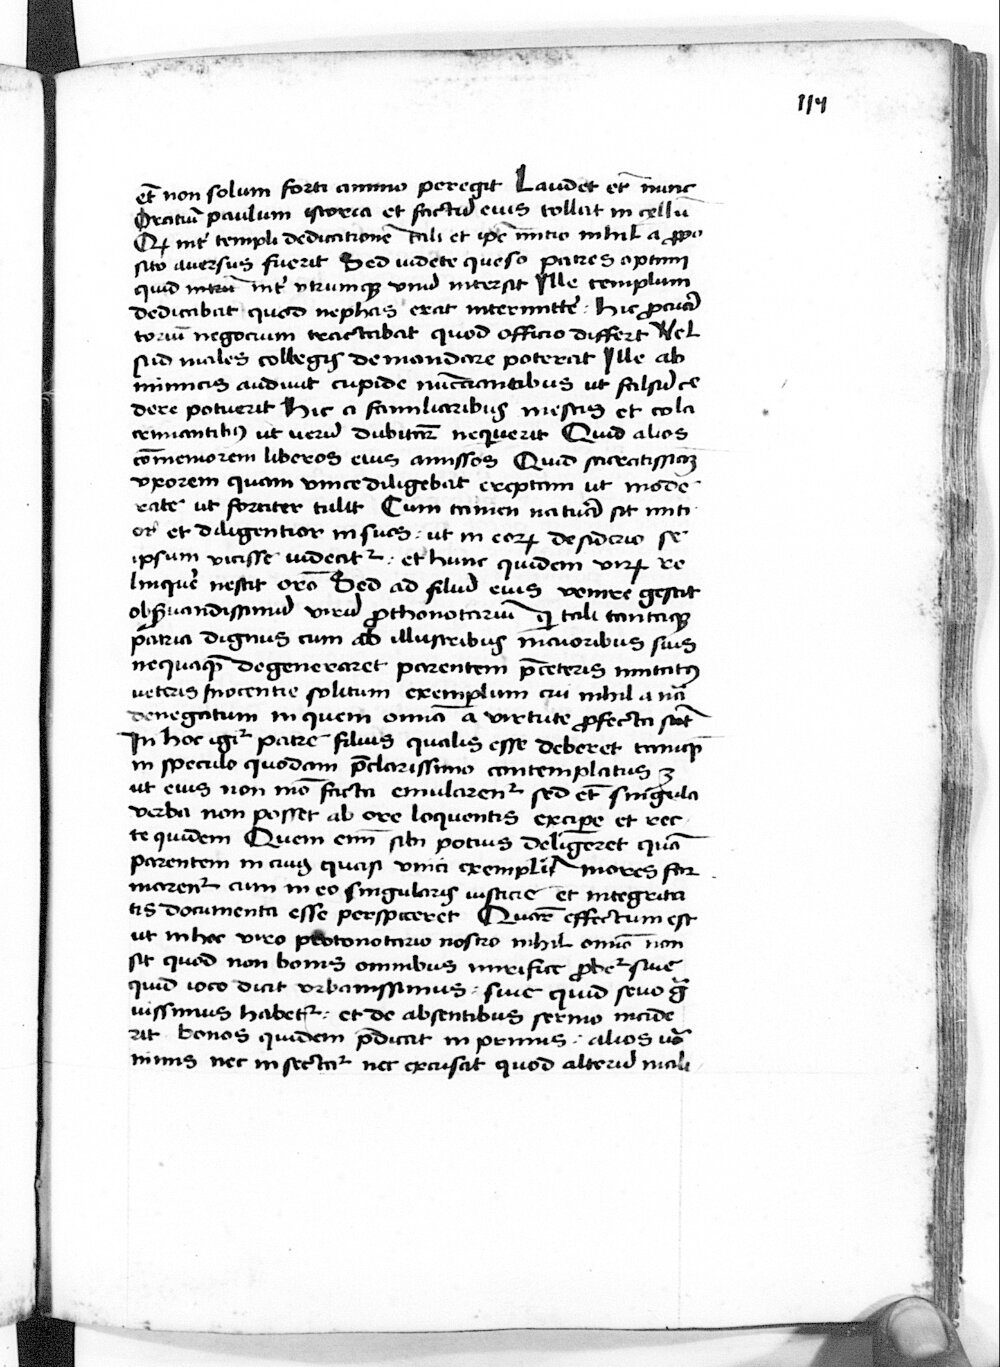 114
et̄ non solum forti animo peregit Laudet et nunc
Oratiū paulum istoria et factū eius tollat in cęlū
Qꝫ int̉ templi dedicationē tali et ip̄e nūtio nihil a p̄po
sito aversus fuerit Sed videte queso patres optimi
quid int̉ utrumqꝫ unū intersit Ille templum
dedicabat quod nephas erat intermitte᷑ : hic p̄curā
toriū negocium tractabat quod officio differt Vel
collegis demandare poterat Ille ab
inimicis audiuit cupide nuncciantibus ut falsū ce
dere potuerit Hic a familiaribus mestis et cola
crimantibꝰ ut verū dubitar̄ nequerit Quid alios
com̄emorem liberos eius amissos Quid sacratissiaꝫ
uxorem quam unice diligebat ereptam ut mode
rate ut fortiter tulit Cum tamen naturā sit miti
or et diligentior in suos : ut in eorꝫ desiderio se
ipsum vicisse videat᷑ : et hunc quidem virꝫ re
linquer̄ nestit orō Sed ad filiū eius venire gestit
obs̄uandissimū virū p̄thonotariū qi tali tantaqꝫ
patria dignus cum ab illustribus maioribus suis
nequaqꝫ degeneraret parentem p̄ceteris imitatꝰ
veteris inocentie solitum exemplum cui nihil a nā
denegatum in quem omnia a virtute p̄fecta sūt
In hoc igr̄ patre filius qualis esse deberet tanqꝫ
in speculo quodam p̄clarissimo contemplatus ꝫ
ut eius non mō facta emularen᷑ sed et̄ singula
verba non posset ab ore loquentis excipe᷑ et rec
te quidem Quem enī sibi potius deligeret quā
parentem in cuius quasi unici exempli mores for
maren᷑ cum in eo singularis iusticie et integrita
tis documenta esse perspiceret Quar̄ effectum est
ut in hoc viro protonotario nostro nihil omīo non
sit quod non bonis omnibus mirifice p̄bet᷑ siue
quid ioco dicit urbanissimus : siue quid seuo ḡ
uissimus habet᷑ : et de absentibus sermo incide
rit bonos quidem p̄dicat in primis : alios uō
minus nec insectat᷑ nec excusat quod alterū mali